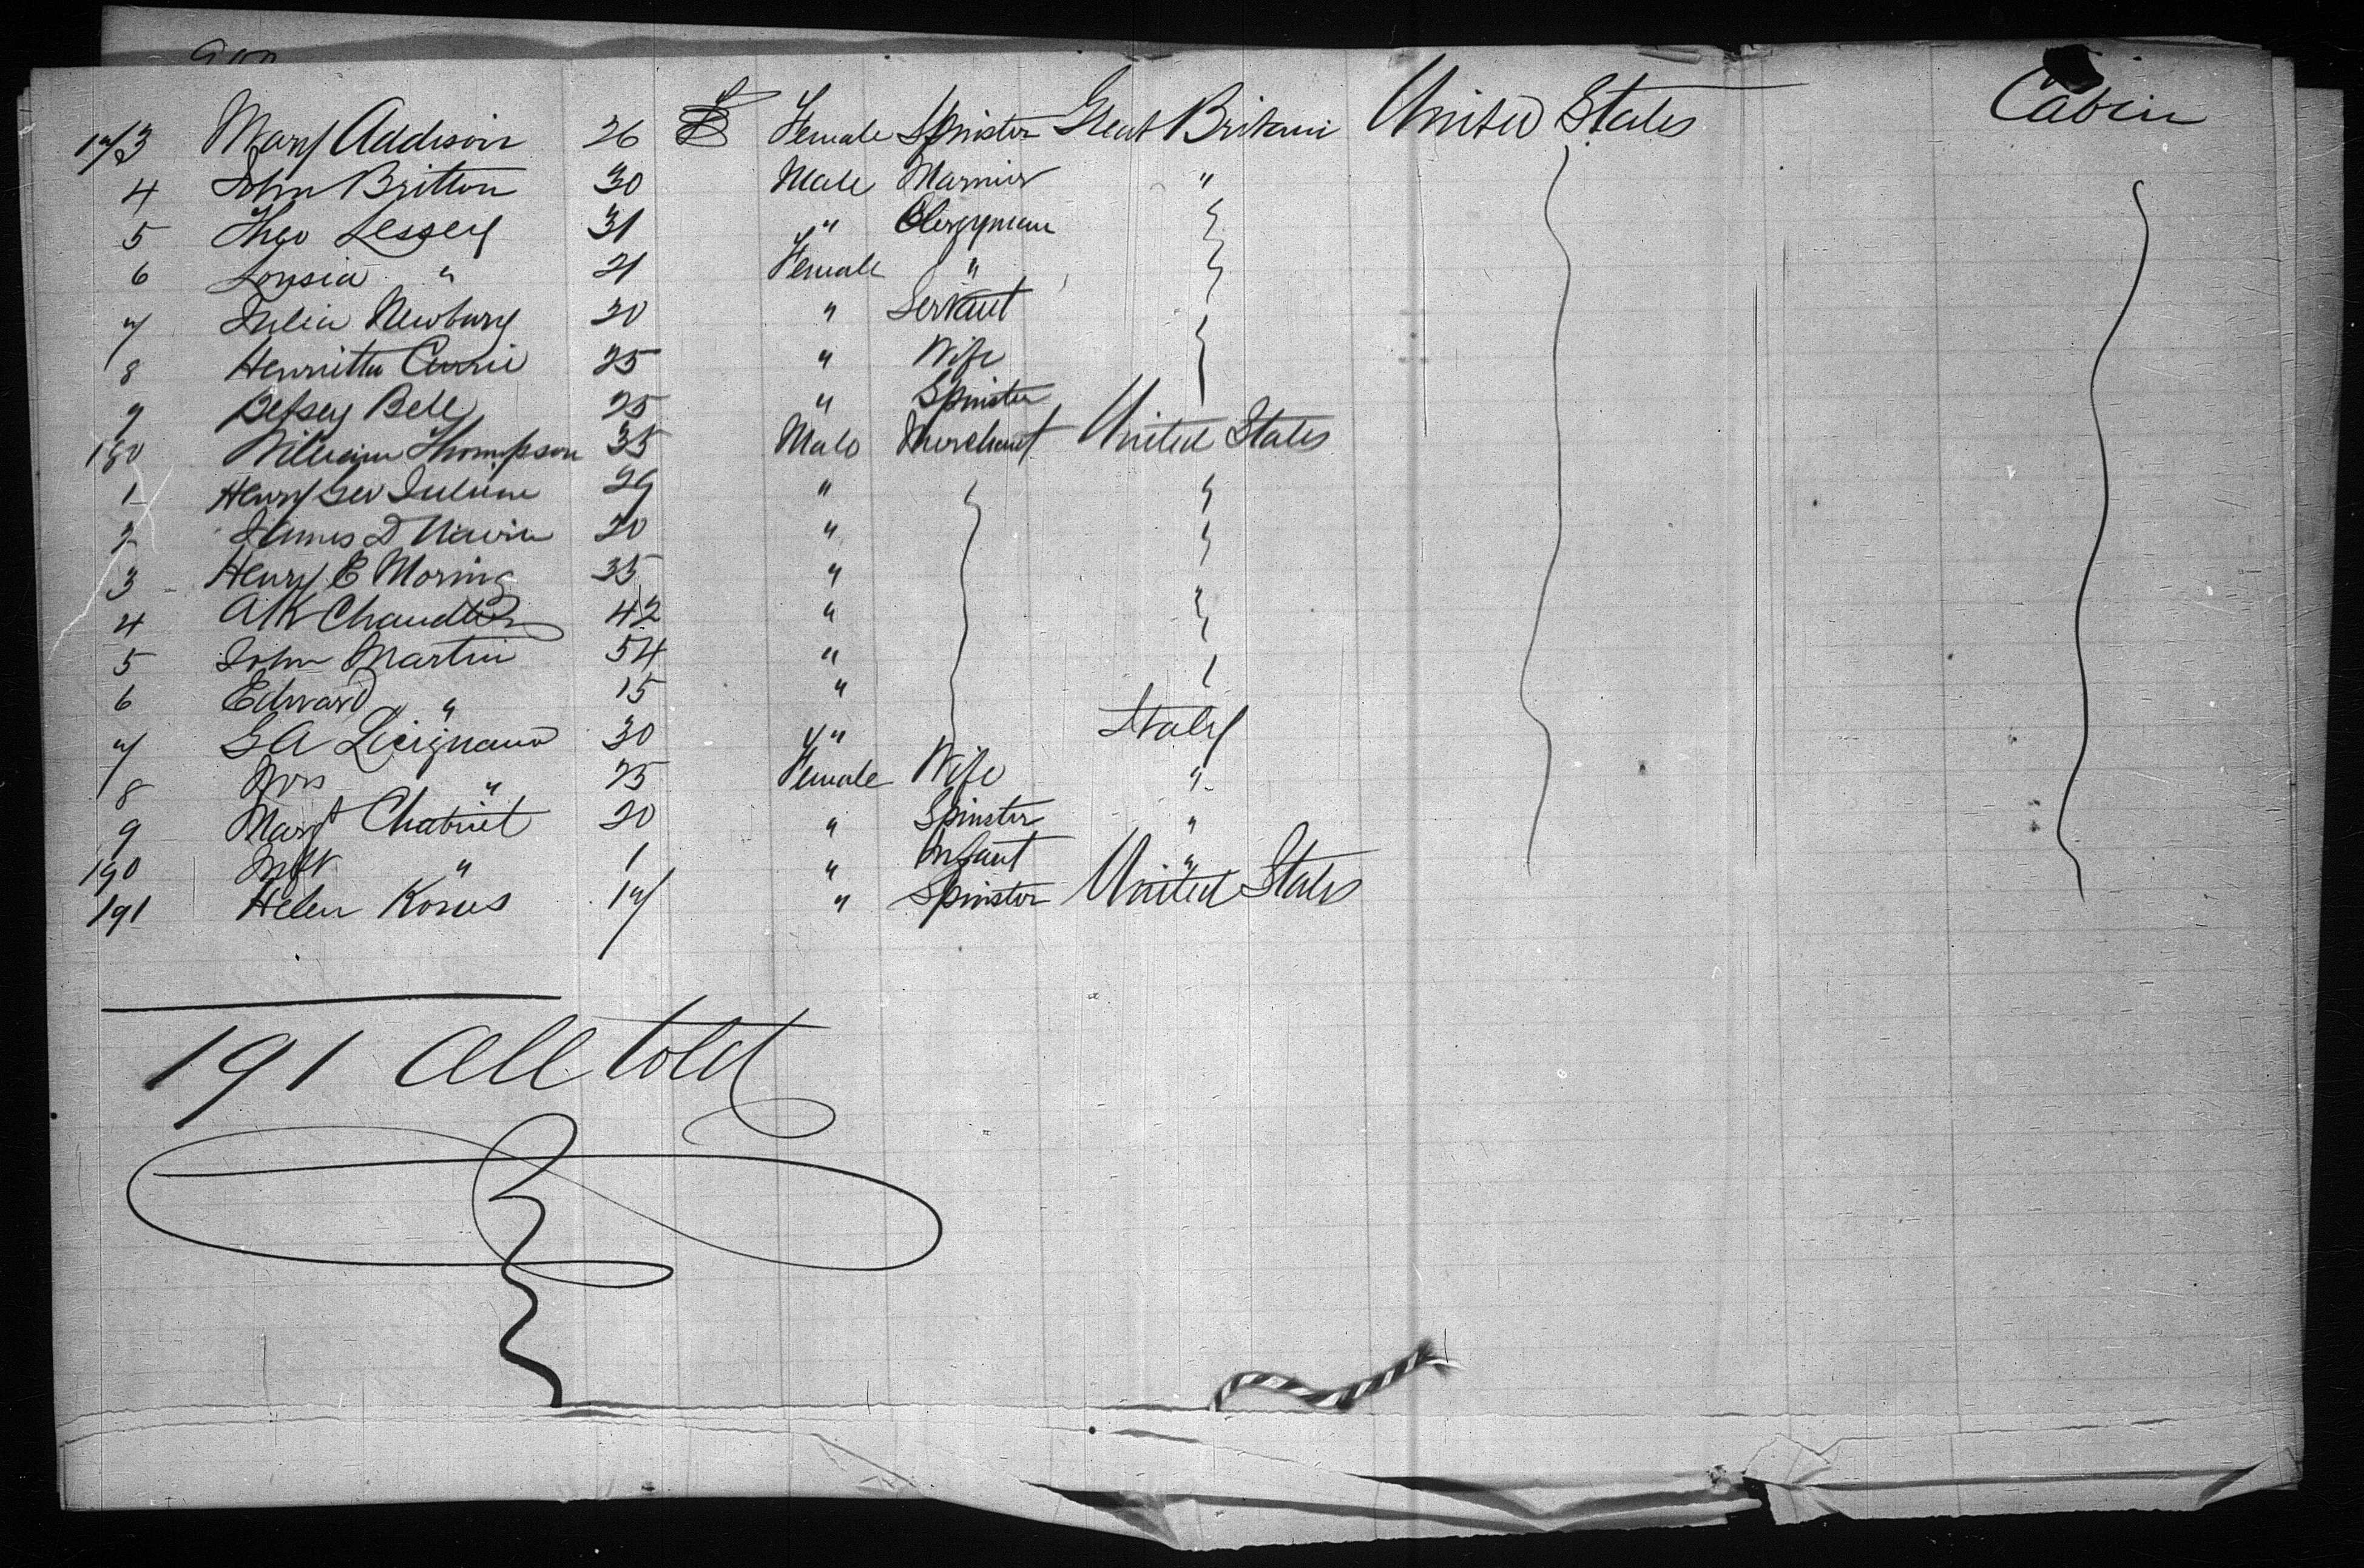 173 Mary Addison 26 Female Spinster Great Britain United States Cabin
4 John Britton 30 Male Mariner "
5 Theo Lessey 31 " Clergyman
6 Lousia " 21 Female "
7 Julia Newbury 20 " Servant
8 Henrietta Currie 25 " Wife
9 Betsey Bell 25 " Spinster
180 William Thompson 35 Male Merchant United States
1 Henry Geo 29 "
2 James D 20 "
3 Henry E Moring 35 "
4 A K Chandler 42 " "
5 John Martin 54 "
6 Edward " 15 "
7 G A 30 " Italy
8 Mrs " 25 Female Wife "
9 Margt Chatriet 20 " Spinster "
190 Inft " 1 " Infant "
191 Helen 17 " Spinster United States
191 All told